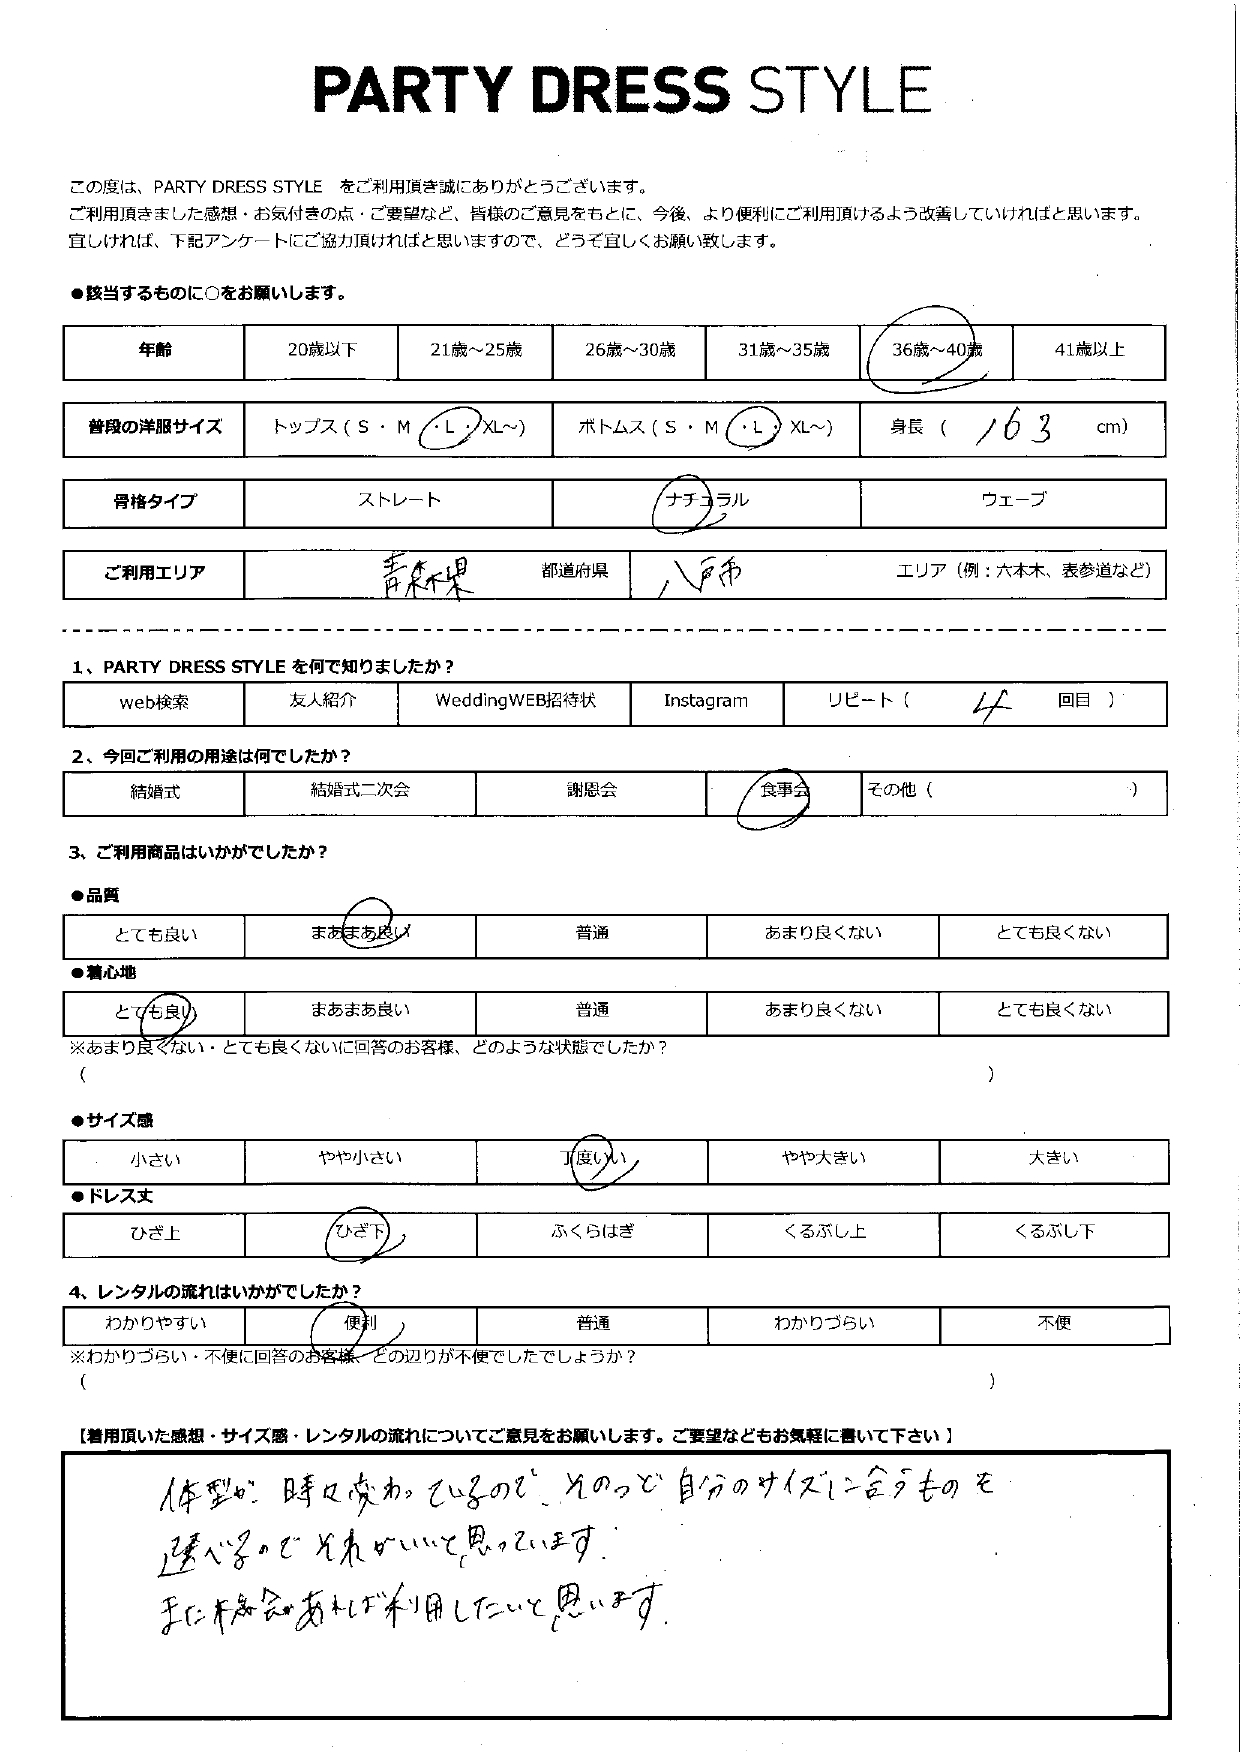 PARTY DRESS STYLE
この度は、PARTY DRESS STYLE をご利用頂き誠にありがとうございます。
ご利用頂きました感想・お気付きの点・ご要望など、皆様のご意見をもとに、今後、より便利にご利用頂けるよう改善していければと思います。
宜しければ、下記アンケートにご協力頂ければと思いますので、どうぞ宜しくお願い致します。
●該当するものに○をお願いします。
年齢 20歳以下 21歳～25歳 26歳～30歳 31歳～35歳 36歳～40歳 41歳以上
普段の洋服サイズ トップス ( S ・ M ・L・ XL～) ボトムス ( S ・ M ・L・ XL～) 身長 ( 163 cm)
骨格タイプ ストレート ナチュラル ウェーブ
ご利用エリア 青森県 都道府県 八戸市 エリア（例：六本木、表参道など）
1、PARTY DRESS STYLE を何で知りましたか？
web検索 友人紹介 WeddingWEB招待状 Instagram リピート（ 4 回目 ）
2、今回ご利用の用途は何でしたか？
結婚式 結婚式二次会 謝恩会 食事会 その他（ ）
3、ご利用商品はいかがでしたか？
●品質
とても良い まあまあ良い 普通 あまり良くない とても良くない
●着心地
とても良い まあまあ良い 普通 あまり良くない とても良くない
※あまり良くない・とても良くないに回答のお客様、どのような状態でしたか？
（ ）
●サイズ感
小さい やや小さい 丁度いい やや大きい 大きい
●ドレス丈
ひざ上 ひざ下 ふくらはぎ くるぶし上 くるぶし下
4、レンタルの流れはいかがでしたか？
わかりやすい 便利 普通 わかりづらい 不便
※わかりづらい・不便に回答のお客様、どの辺りが不便でしたでしょうか？
（ ）
【着用頂いた感想・サイズ感・レンタルの流れについてご意見をお願いします。ご要望などもお気軽に書いて下さい 】
体型が時々変わっているので、そのつど自分のサイズに合うものを
選べるのでそれがいいと思っています.
また機会があれば利用したいと思います.